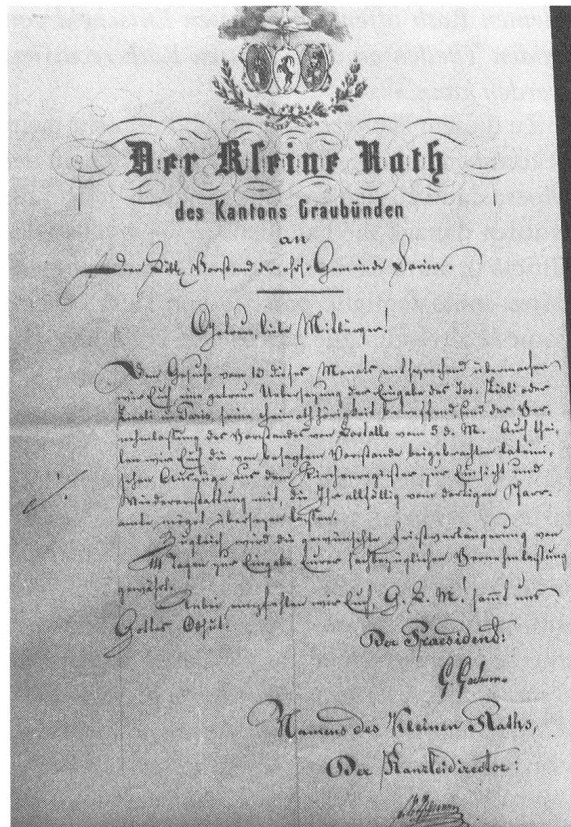 Der Kleine Rath
des Kantons Graubünden
an
den Vorstand der Gemeinde
Getreue, liebe Mitbürger!
Dem Gesuche vom 13 dieses Monats entsprechend übermachen
wir Euch eine getreue Uebersetzung der Eingabe des Jos. oder
in seine betreffend und der Ver-
nehmlassung des Vorstandes von vom 5 d. M. Auch thei-
len wir Euch die von besagtem Vorstande beigebrachten lateini-
schen Auszüge aus dem Kirchenregister zur Einsicht und
Wiedererstattung mit, die Ihr allfällig vom dortigen Pfarr-
amte möget übersetzen lassen.
Zugleich wird die gewünschte Fristverlängerung von
14 Tagen zur Eingabe Eurer sachbezüglichen Vernehmlassung
gewährt.
Anbei empfehlen wir Euch, G. L. M.! sammt uns
Gottes Obhut.
Der Praesident:
Namens des Kleinen Raths,
Der Kanzleidirector: